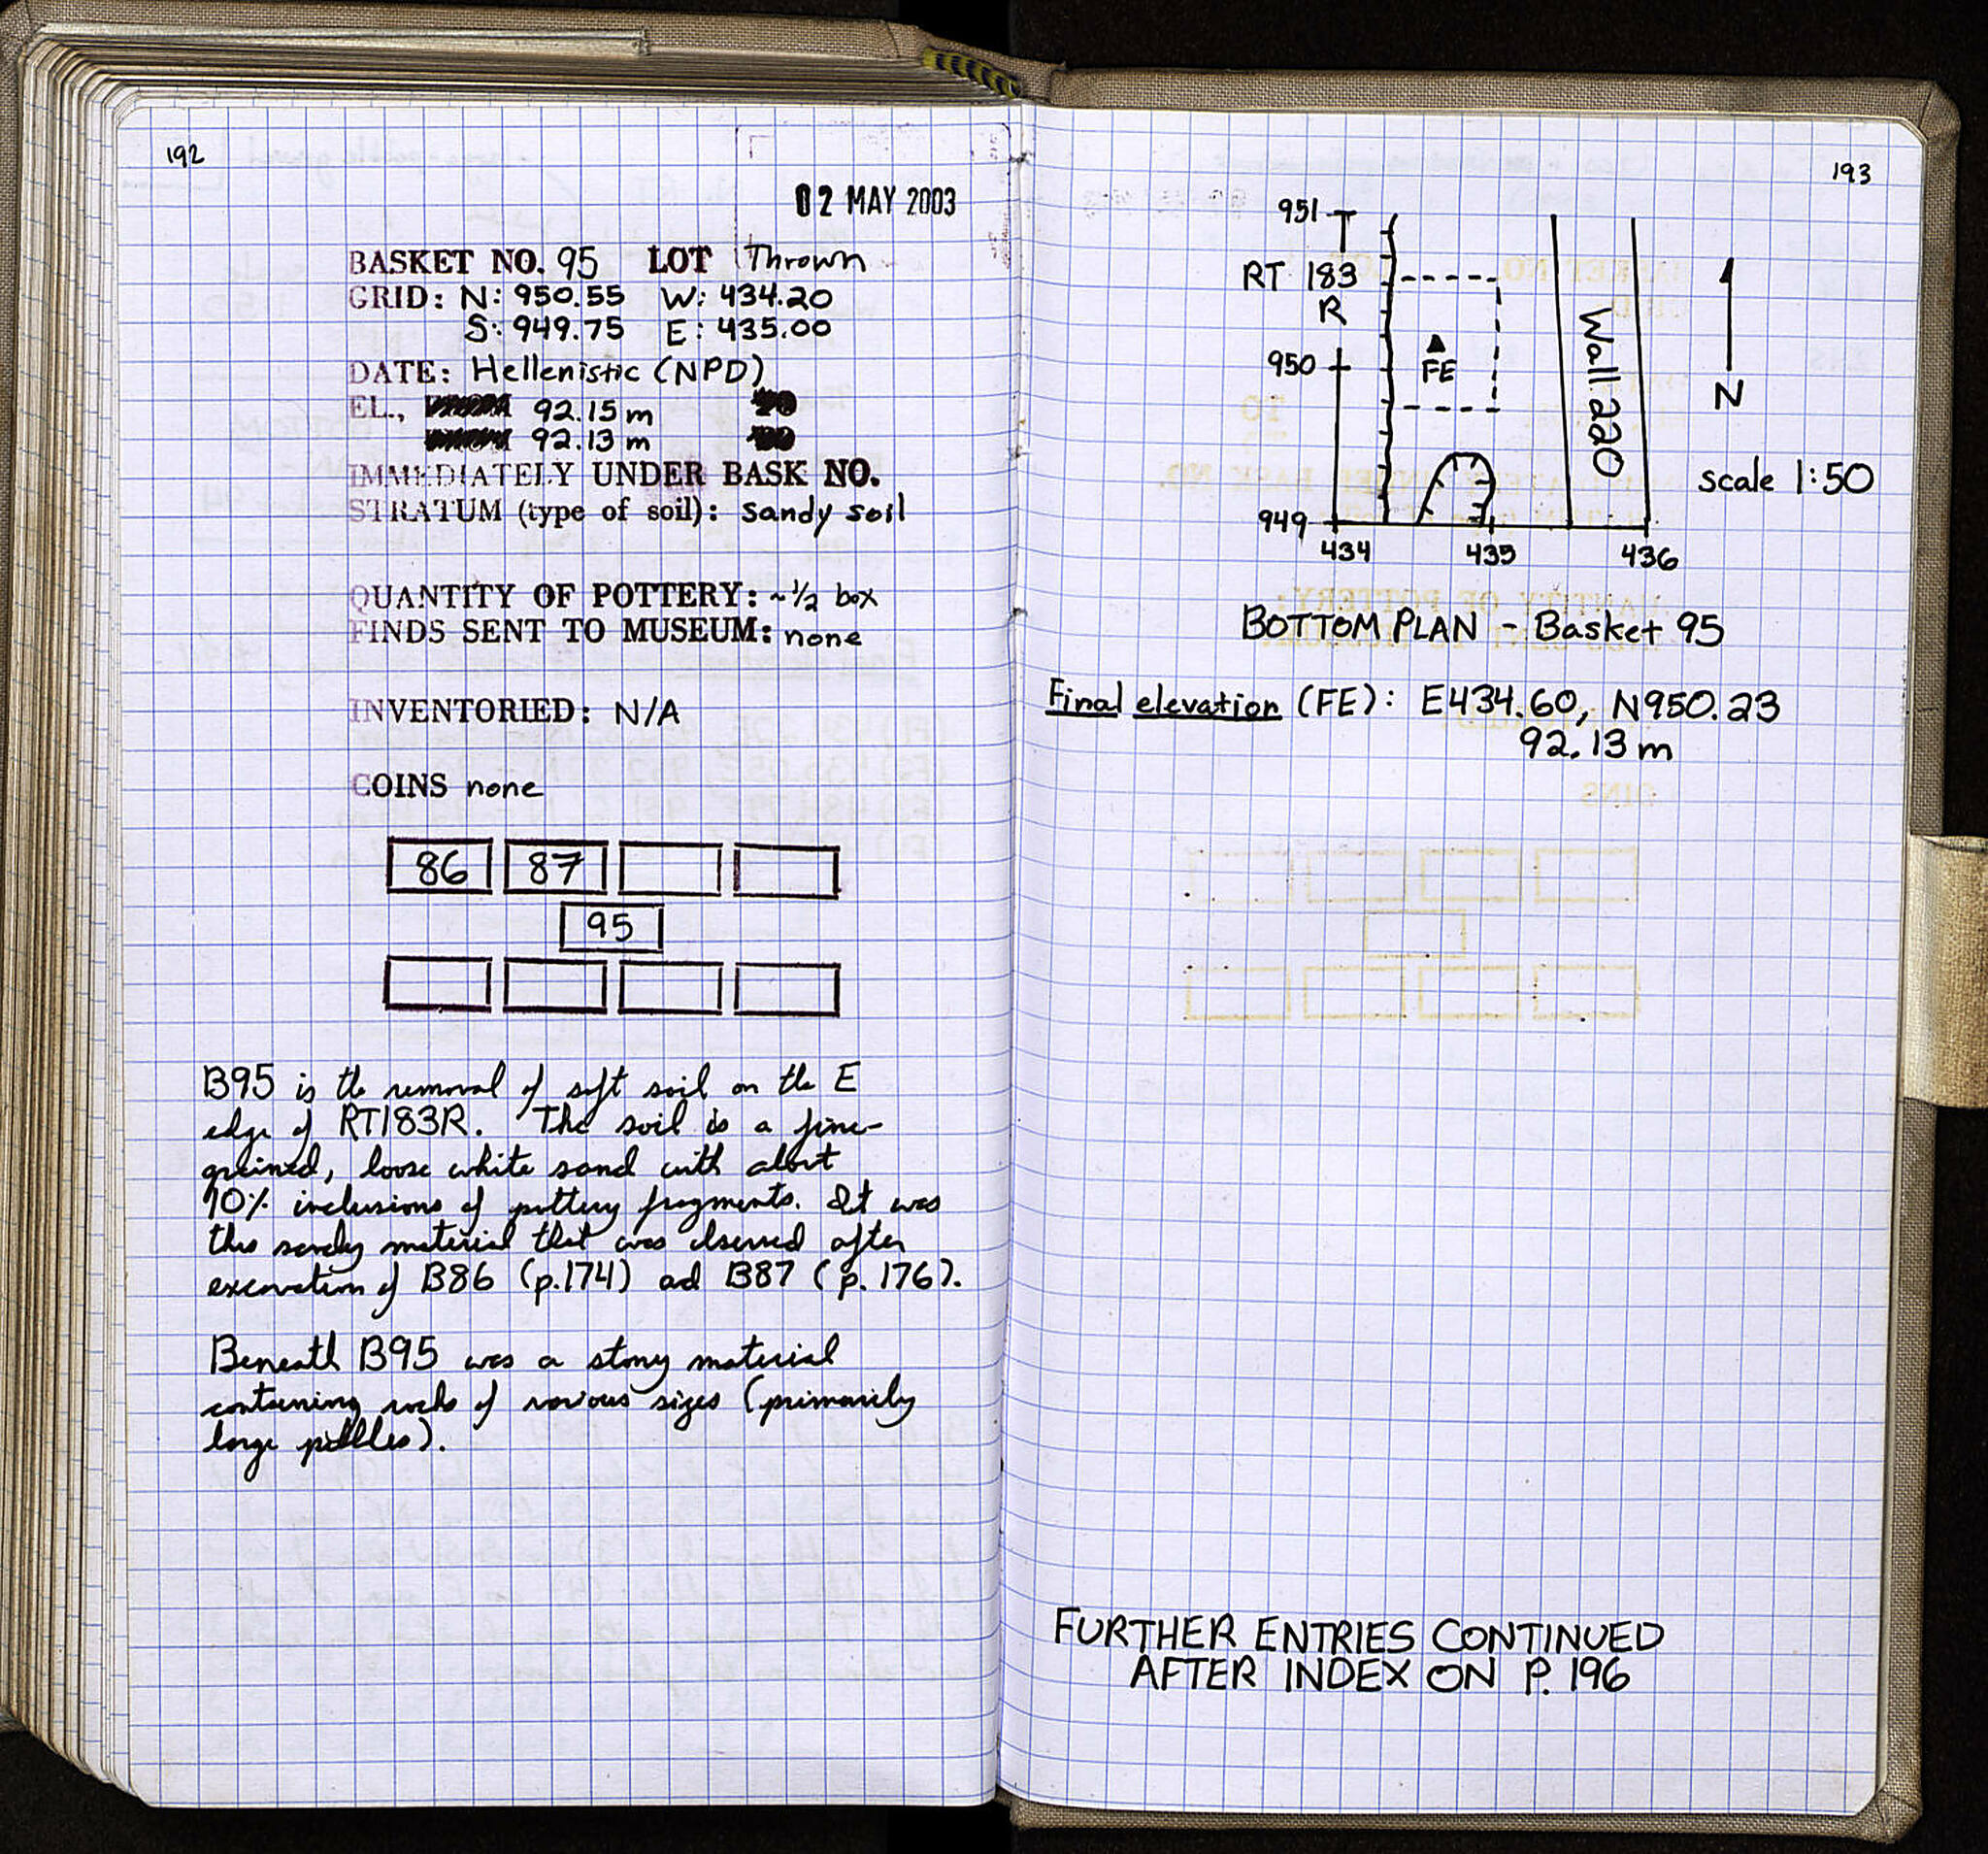 192
02 MAY 2003
BASKET NO. 95 LOT Thrown
GRID: N: 950.55 W: 434.20
S: 949.75 E: 435.00
DATE: Hellenistic (NPD)
EL., 92.15 m
92.13 m
IMMEDIATELY UNDER BASK NO.
STRATUM (type of soil): sandy soil
QUANTITY OF POTTERY: ~1/2 box
FINDS SENT TO MUSEUM: none
INVENTORIED: N/A
COINS none
86 87
95
B95 is the removal of soft soil on the E
edge of RT183R. The soil is a fine-
grained, loose white sand with about
10% inclusions of pottery fragments. It was
this sandy material that was observed after
excavation of B86 (p.174) and B87 (p. 176).
Beneath B95 was a stony material
containing rocks of various sizes (primarily
large pebbles).
193
951
RT 183
R
950
FE
Wall 220
N
scale 1:50
949
434 435 436
BOTTOM PLAN - Basket 95
Final elevation (FE): E434.60, N950.23
92.13 m
FURTHER ENTRIES CONTINUED
AFTER INDEX ON P. 196